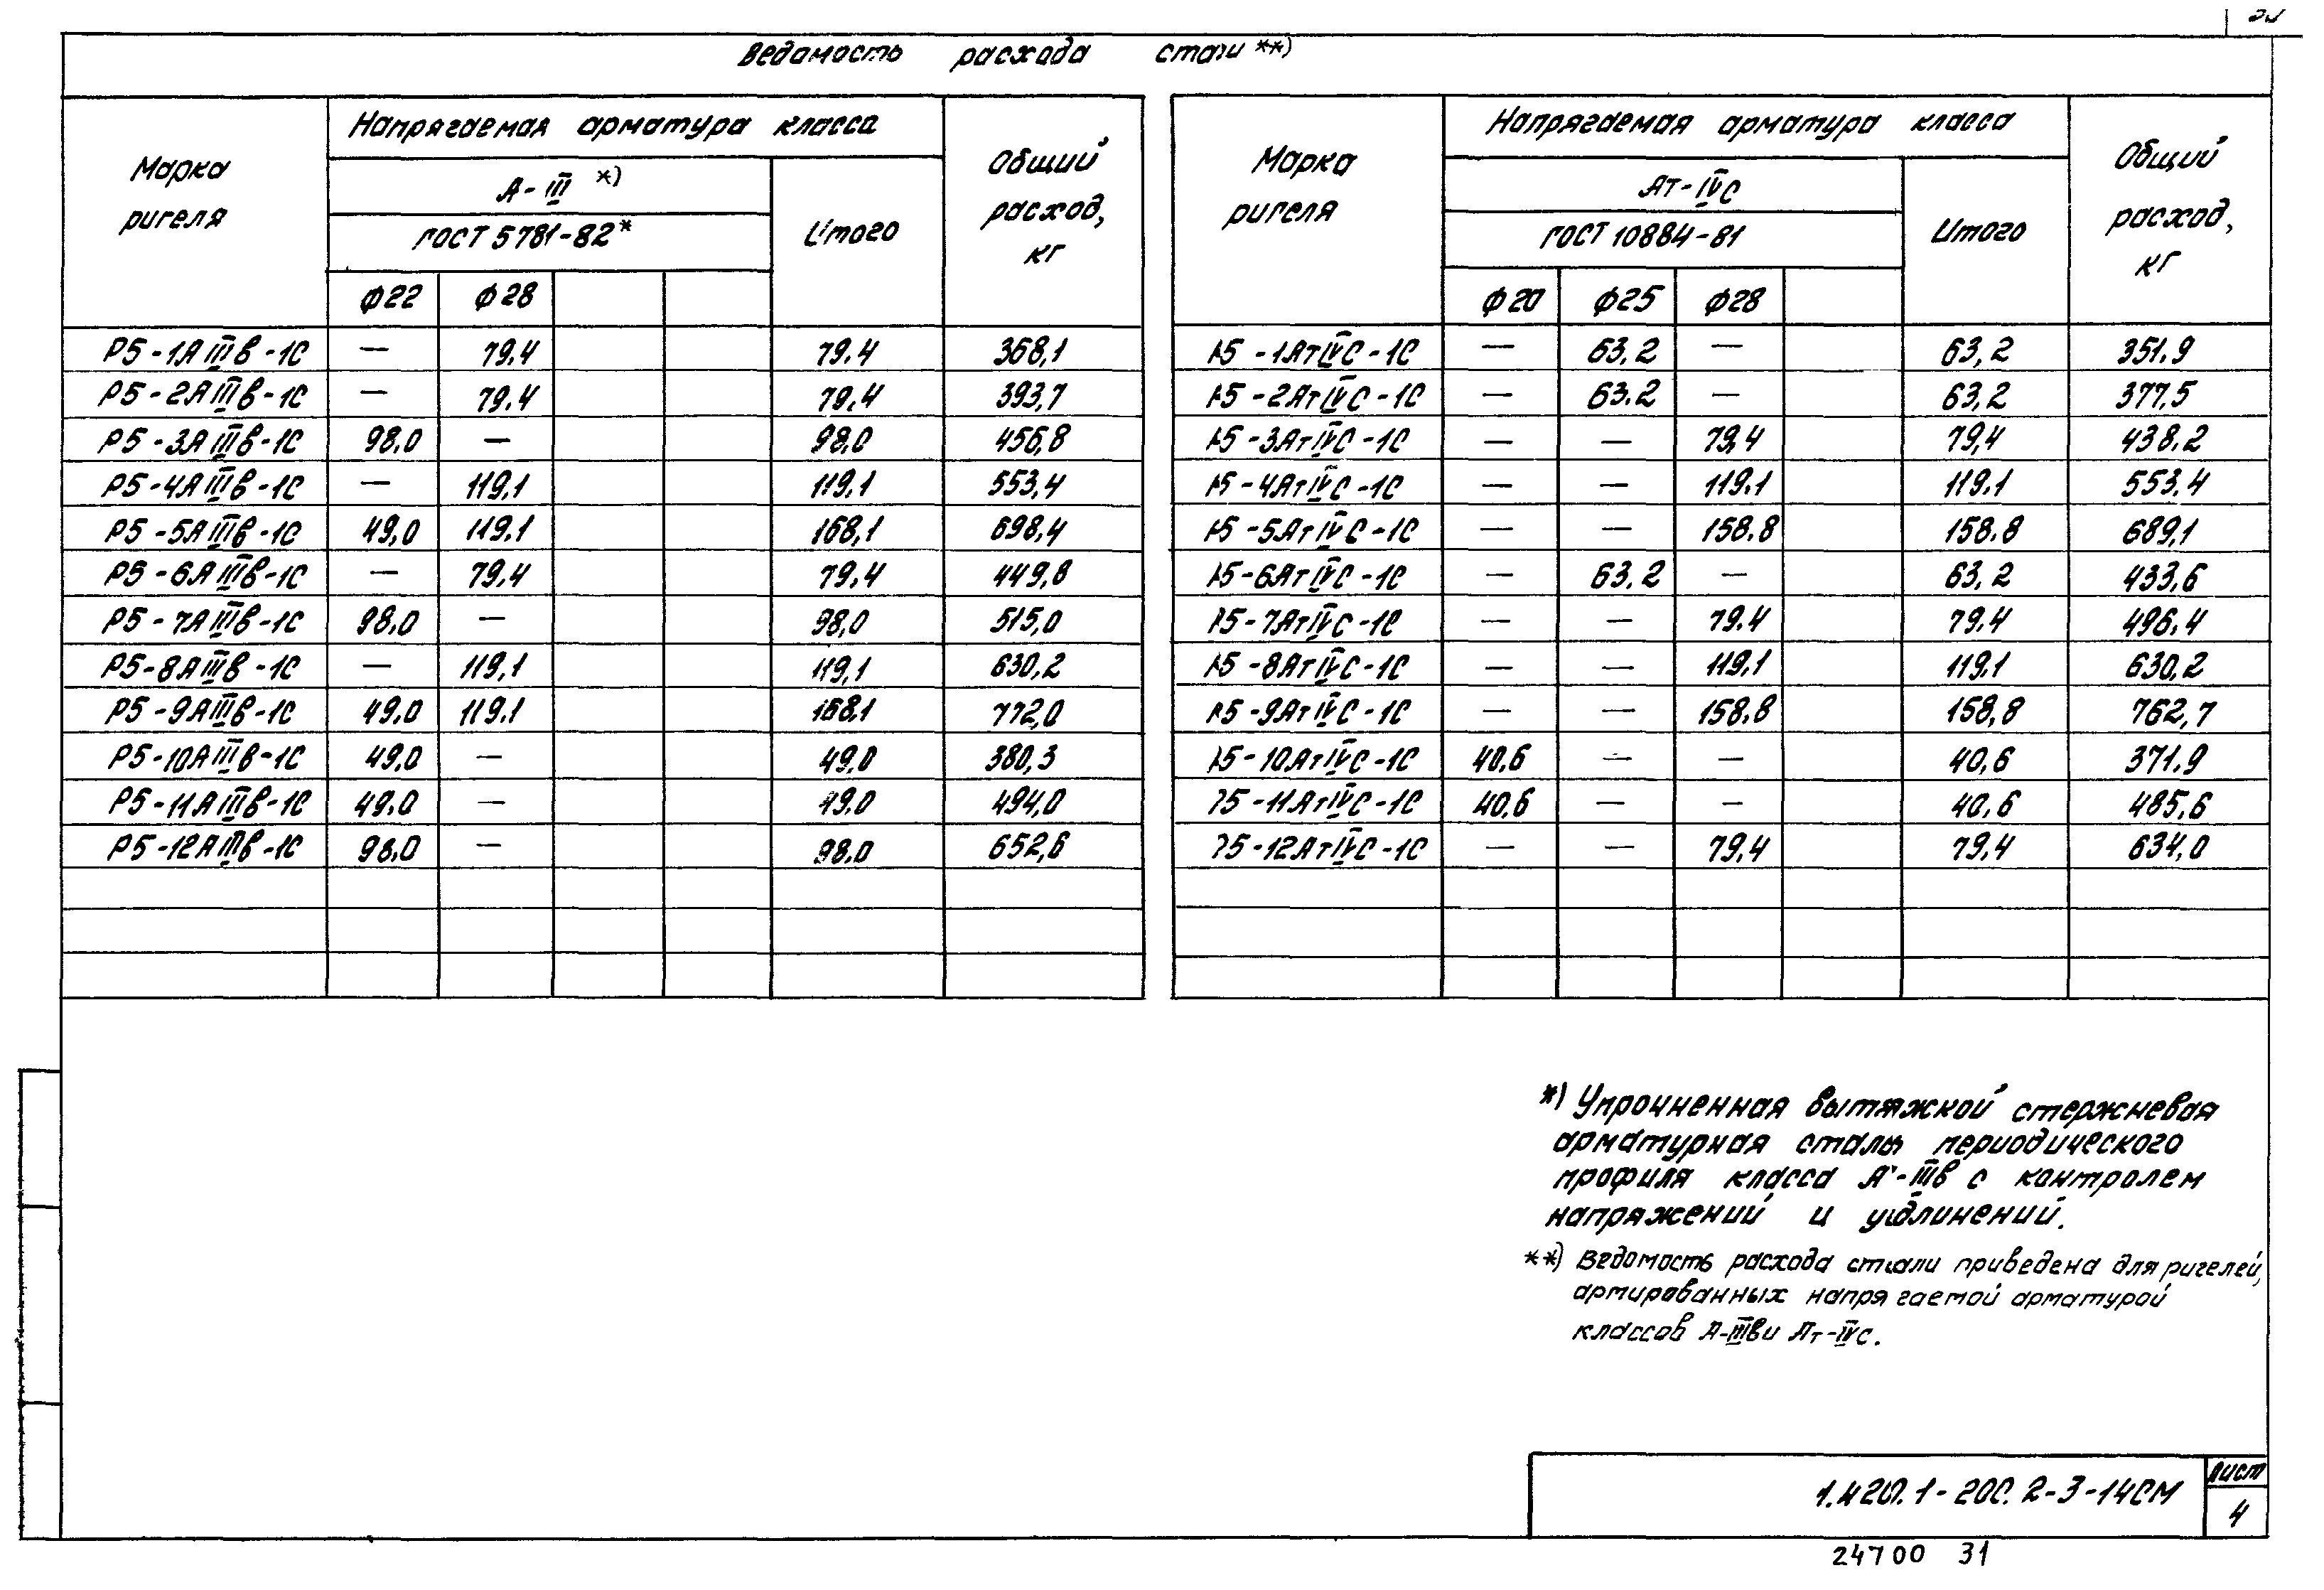 Ведомость расхода стали **)
Марка ригеля | Напрягаемая арматура класса | Общий расход, кг
А-III *) | Итого
ГОСТ 5781-82*
Ф22 | Ф28
Р5-1АIIIв-1С | — | 79.4 | 79.4 | 368,1
Р5-2АIIIв-1С | — | 79.4 | 79.4 | 393,7
Р5-3АIIIв-1С | 98.0 | — | 98.0 | 456,8
Р5-4АIIIв-1С | — | 119,1 | 119.1 | 553,4
Р5-5АIIIв-1С | 49,0 | 119.1 | 168,1 | 698,4
Р5-6АIIIв-1С | — | 79,4 | 79.4 | 449,8
Р5-7АIIIв-1С | 98.0 | — | 98,0 | 515,0
Р5-8АIIIв-1С | — | 119,1 | 119,1 | 630,2
Р5-9АIIIв-1С | 49.0 | 119.1 | 168,1 | 772,0
Р5-10АIIIв-1С | 49.0 | — | 49.0 | 380,3
Р5-11АIIIв-1С | 49.0 | — | 49.0 | 494,0
Р5-12АIIIв-1С | 98.0 | — | 98.0 | 652,6
Марка ригеля | Напрягаемая арматура класса | Общий расход, кг
Ат-IVС | Итого
ГОСТ 10884-81
Ф20 | Ф25 | Ф28
Р5-1АтIVС-1С | — | 63.2 | — | 63,2 | 351.9
Р5-2АтIVС-1С | — | 63.2 | — | 63,2 | 377,5
Р5-3АтIVС-1С | — | — | 79,4 | 79,4 | 438.2
Р5-4АтIVС-1С | — | — | 119.1 | 119.1 | 553.4
Р5-5АтIVС-1С | — | — | 158.8 | 158.8 | 689,1
Р5-6АтIVС-1С | — | 63.2 | — | 63.2 | 433,6
Р5-7АтIVС-1С | — | — | 79.4 | 79.4 | 496,4
Р5-8АтIVС-1С | — | — | 119,1 | 119.1 | 630,2
Р5-9АтIVС-1С | — | — | 158.8 | 158,8 | 762,7
Р5-10АтIVС-1С | 40,6 | — | — | 40,6 | 371.9
Р5-11АтIVС-1С | 40,6 | — | — | 40,6 | 485,6
Р5-12АтIVС-1С | — | — | 79,4 | 79,4 | 634,0
*) Упрочненная вытяжкой стержневая
арматурная сталь периодического
профиля класса А-IIIв с контролем
напряжений и удлинений.
**) Ведомость расхода стали приведена для ригелей,
армированных напрягаемой арматурой
классов А-IIIв и Ат-IVС.
1.420.1-20С.2-3-14СМ
Лист
4
24700 31